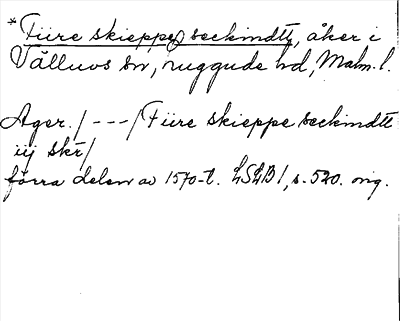 *Fiire skieppe seckindtt, åker i
Välluvs sn, ruggude hd, Malm. l.
Ager. / --- / Fiire skieppe seckindtt
iij skr /
förra delen av 1570-t. LSÄB 1, s. 520. orig.